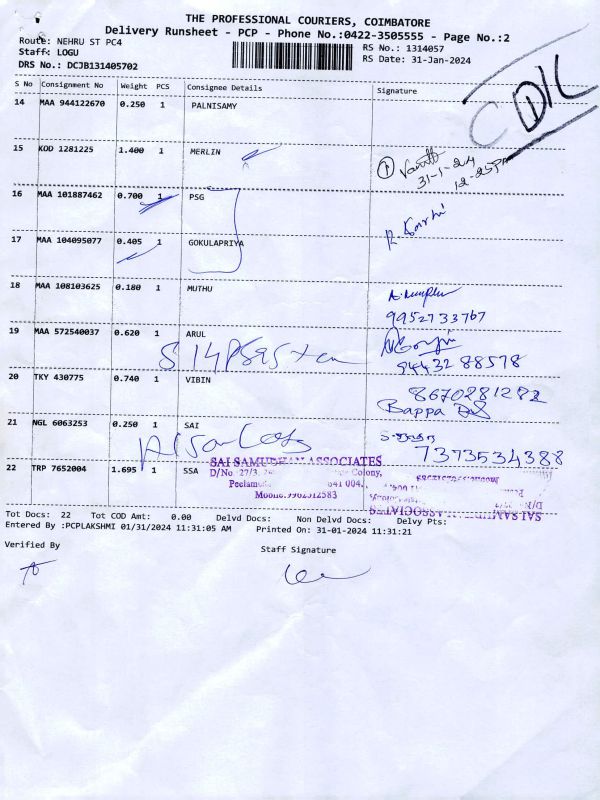 THE PROFESSIONAL COURIERS, COIMBATORE
Delivery Runsheet - PCP - Phone No.:0422-3505555 - Page No.:2
Route: NEHRU ST PC4
RS No.: 1314057
Staff: LOGU
RS Date: 31-Jan-2024
DRS No.: DCJB131405702
S No Consignment No Weight PCS Consignee Details Signature
14 MAA 944122670 0.250 1 PALNISAMY
15 KOD 1281225 1.400 1 MERLIN
31-1-24
12-25PM
16 MAA 101887462 0.700 1 PSG
17 MAA 104095077 0.405 1 GOKULAPRIYA
18 MAA 108103625 0.180 1 MUTHU
9952733767
19 MAA 572540037 0.620 1 ARUL
94432 88578
20 TKY 430775 0.740 1 VIBIN
8670281282
Bappa
21 NGL 6063253 0.250 1 SAI
7373534388
22 TRP 7652004 1.695 1 SSA
SAI SAMUDHAN ASSOCIATES
D/No. 27/3, Colony,
Peelamedu 641 004.
Mobile:9962312583
SAI SAMUDHAN ASSOCIATES
D/No.
Tot Docs: 22 Tot COD Amt: 0.00 Delvd Docs: Non Delvd Docs: Delvy Pts:
Entered By :PCPLAKSHMI 01/31/2024 11:31:05 AM Printed On: 31-01-2024 11:31:21
Verified By
Staff Signature